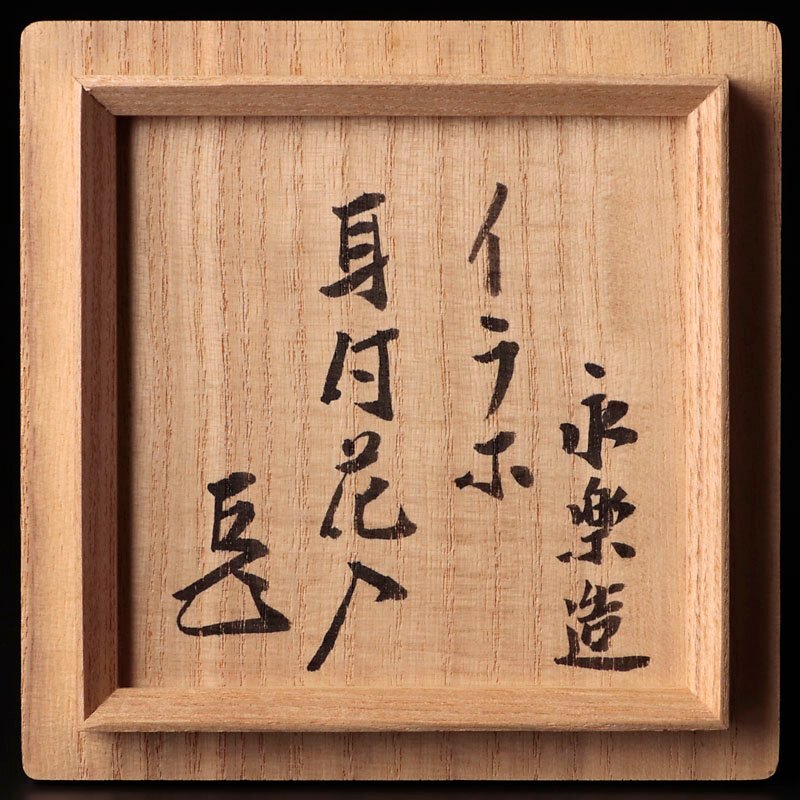 永楽造
イラホ
耳付花入